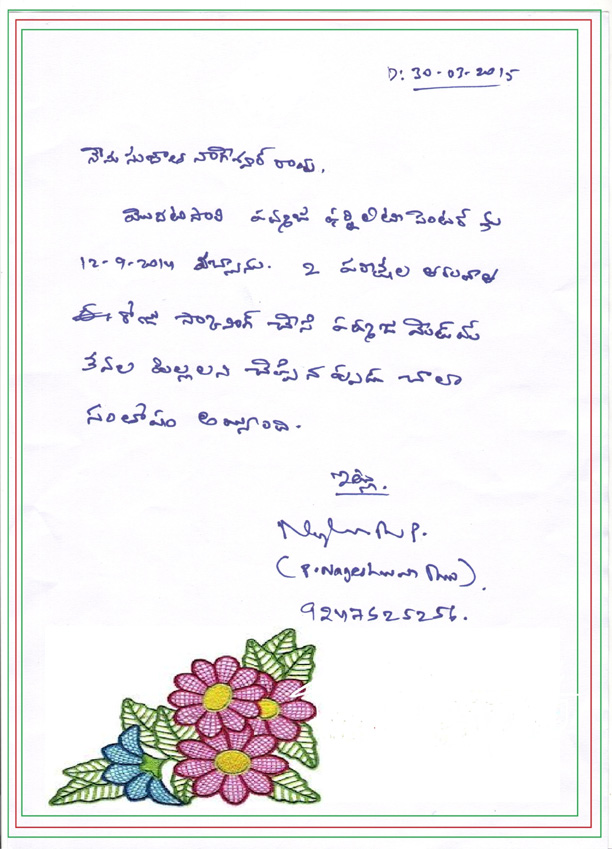 D: 30-03-2015
నేను సుజాత నాగేశ్వర్ రావు,
మొదటసారి పద్మజ ఫర్టిలిటి సెంటర్ కు
12-9-2014 వచ్చాను. 2 పరీక్షల తరువాత
రోజు స్కానింగ్ చేసి పద్మజ మేడమ్
కవల పిల్లలని చెప్పినప్పుడు చాలా
సంతోషం అయ్యింది.
ఇట్లు.
P.
(P. Nageshwar Rao).
9247525256.